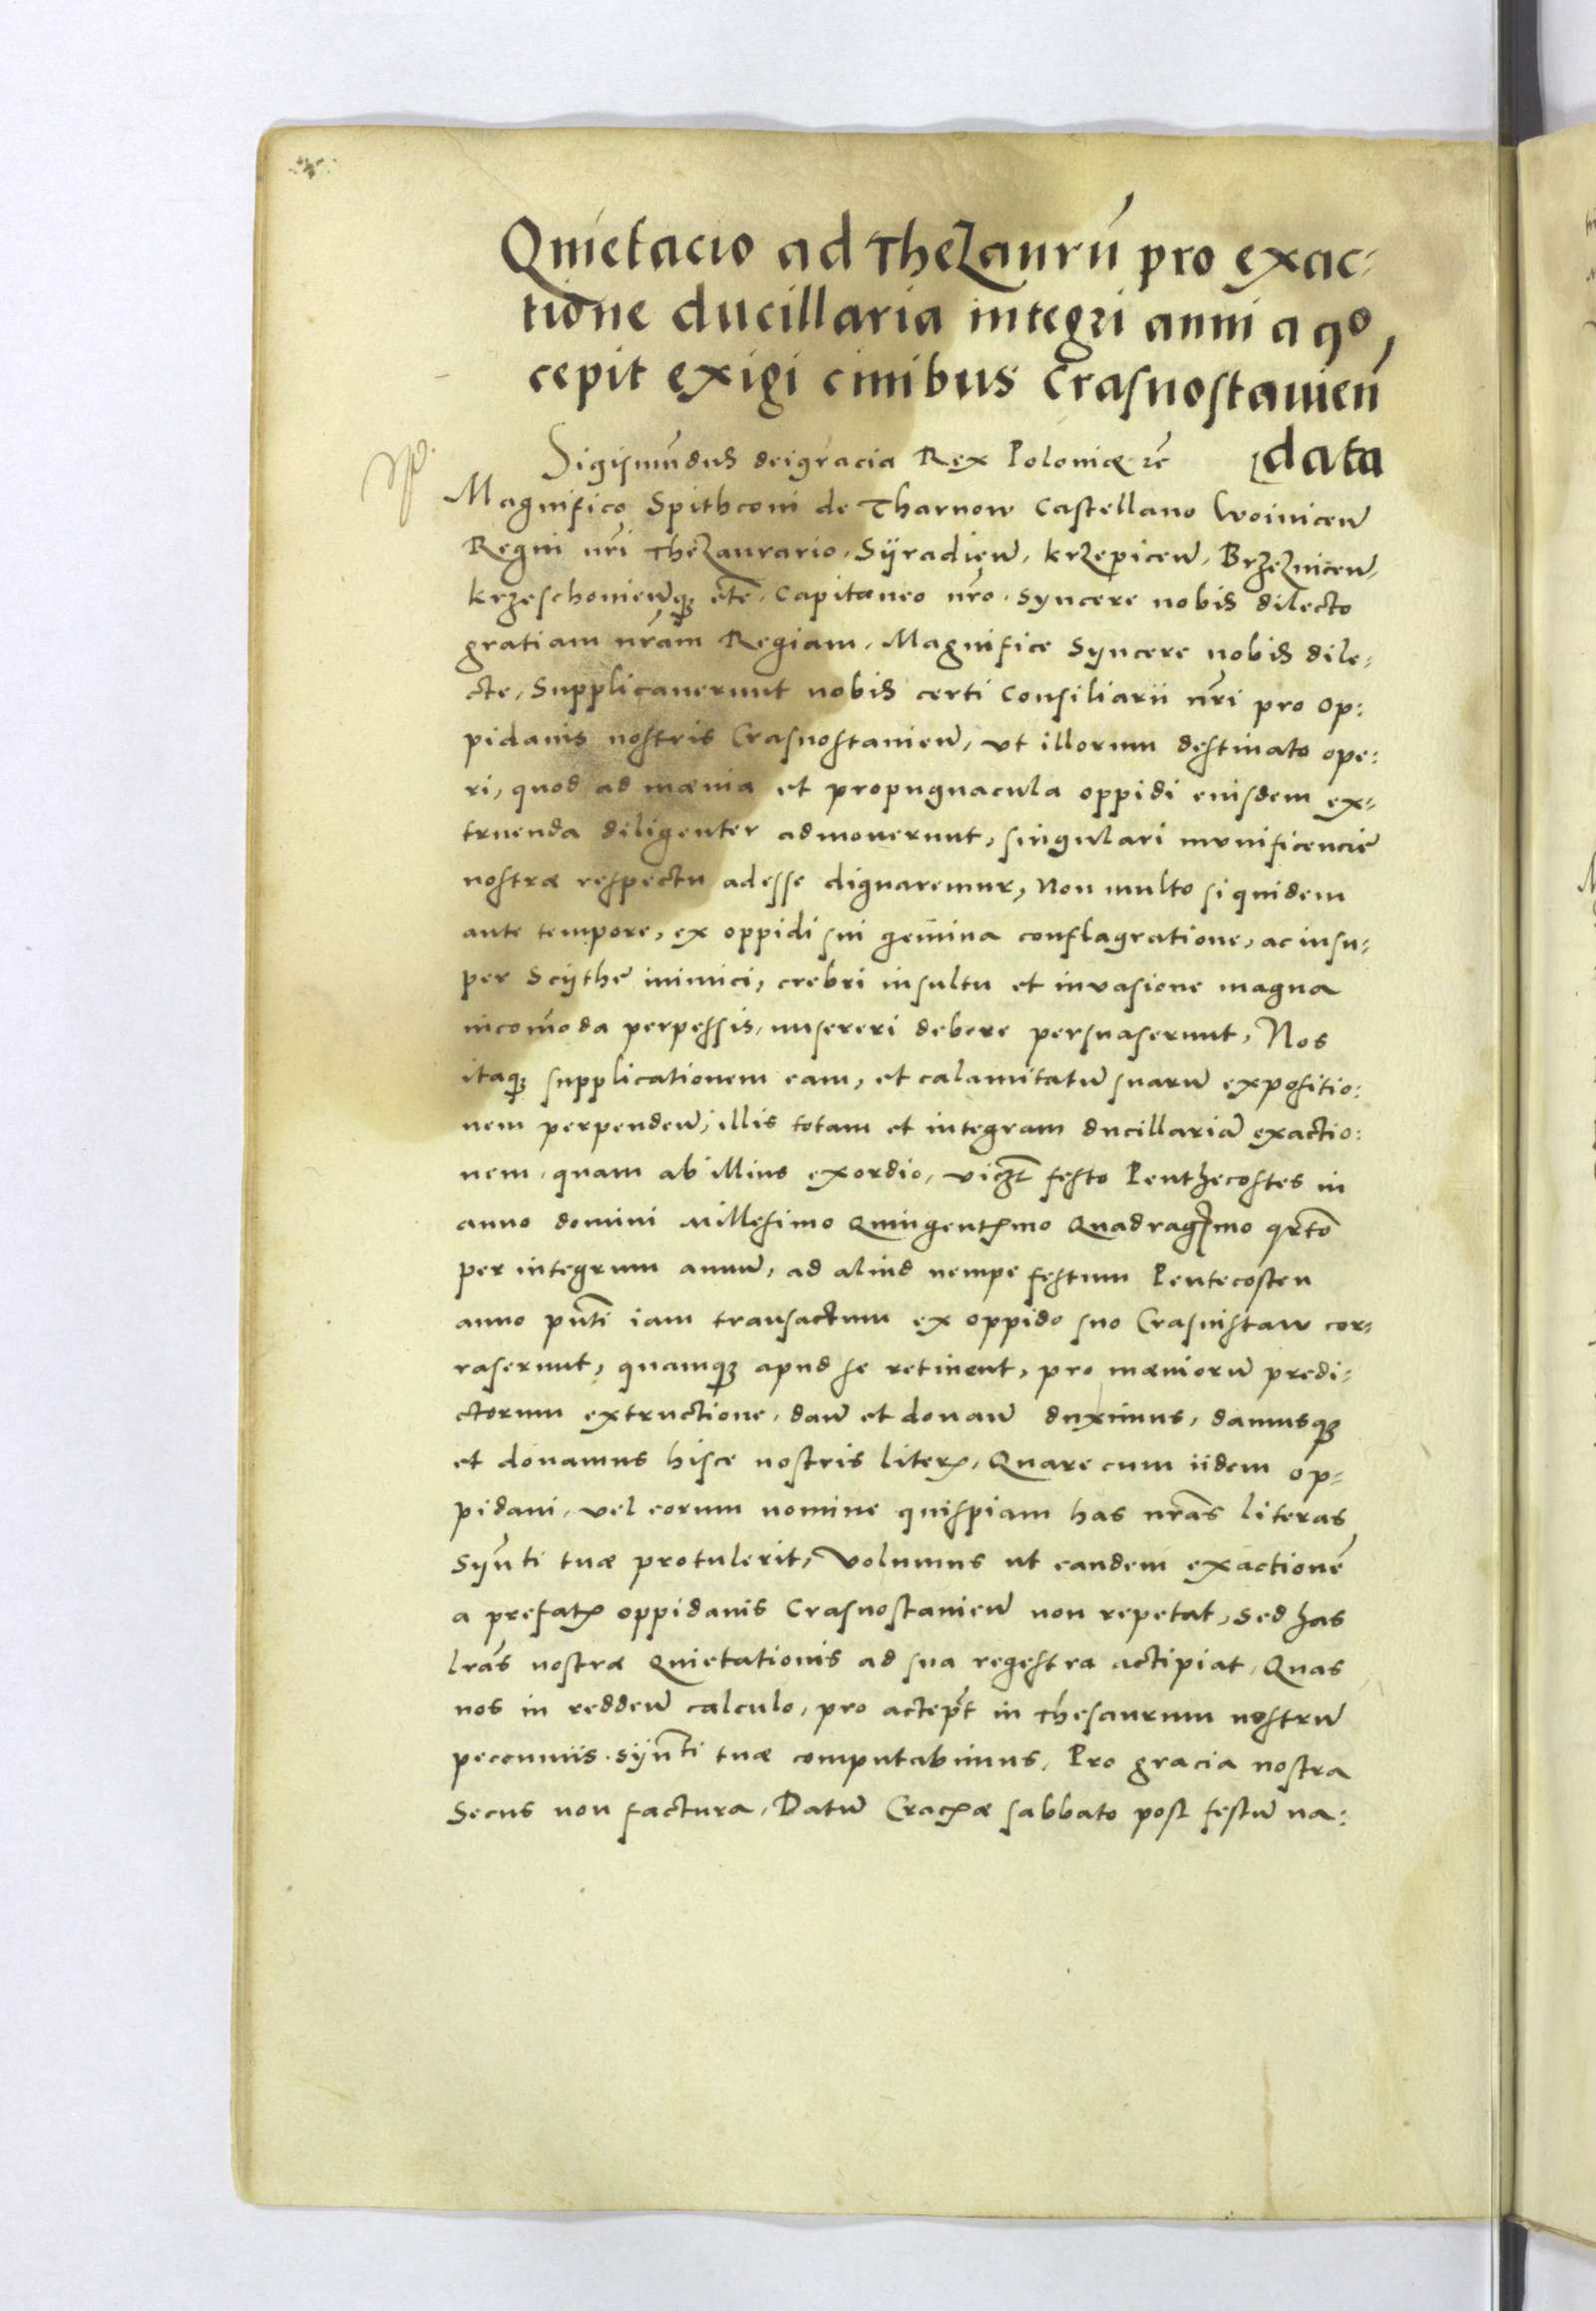 Quietacio ad Thezaurū pro exac-
tione ducillaria integri anni a qo
cepit exigi ciuibus Crasnostauieñ
data
Sigismūdus dei gracia Rex Poloniæ
Magnifico Spithconi de Tharnow Castellano Woiniceñ
Regni nr̃i Thezaurario, Syradieñ, Krzepiceñ, Brzezniceñ,
Krzeschonieñq; etc̃. Capitaneo nr̃o. Syncere nobis dilecto
gratiam nr̃am Regiam. Magnifice Syncere nobis dile-
cte, Supplicauerunt nobis certi Consiliarii nr̃i pro Op:
pidanis nostris Crasnostauieñ, vt illorum destinato ope:
ri, quod ad mœnia et propugnacula oppidi eiusdem ex-
truenda diligenter admouerunt, singulari munificencie
nostræ respectu adesse dignaremur, Non multo siquidem
ante tempore, ex oppidi sui gemina conflagratione, ac insu-
per Scythe inimici, crebri insultu et inuasione magna
incom̄oda perpessis, misereri debere persuaserunt, Nos
itaq; supplicationem eam, et calamitatū suarū expositio:
nem perpendeñ, illis totam et integram ducillariā exactio:
nem, quam ab illius exordio, vicz̃ festo Penthecostes in
anno domini Millesimo Quingentꝭmo Quadragꝭmo qrto
per integrum annū, ad aliud nempe festum Pentecosten
anno pn̄ti iam transactum ex oppido suo Crasnistaw cor-
raserunt, quamq; apud se retinent, pro mœniorū predi-
ctorum extructione, dañ et donañ duximus, damusq;
et donamus hisce nostris literꝭ, Quare cum iidem op-
pidani, vel eorum nomine quispiam has nr̃as literas
Syn̄ti tuæ protulerit, Volumus ut eandem exactionē
a prefatꝭ oppidanis Crasnostanieñ non repetat, Sed has
lr̃as nostræ Quietationis ad sua regestra accipiat, Quas
nos in reddeñ calculo, pro accept̃ in Thesaurum nostrū
pecunniis Syn̄ti tuæ computabimus, Pro gracia nostra
Secus non factura, Datū Cracꝭæ sabbato post festū na: